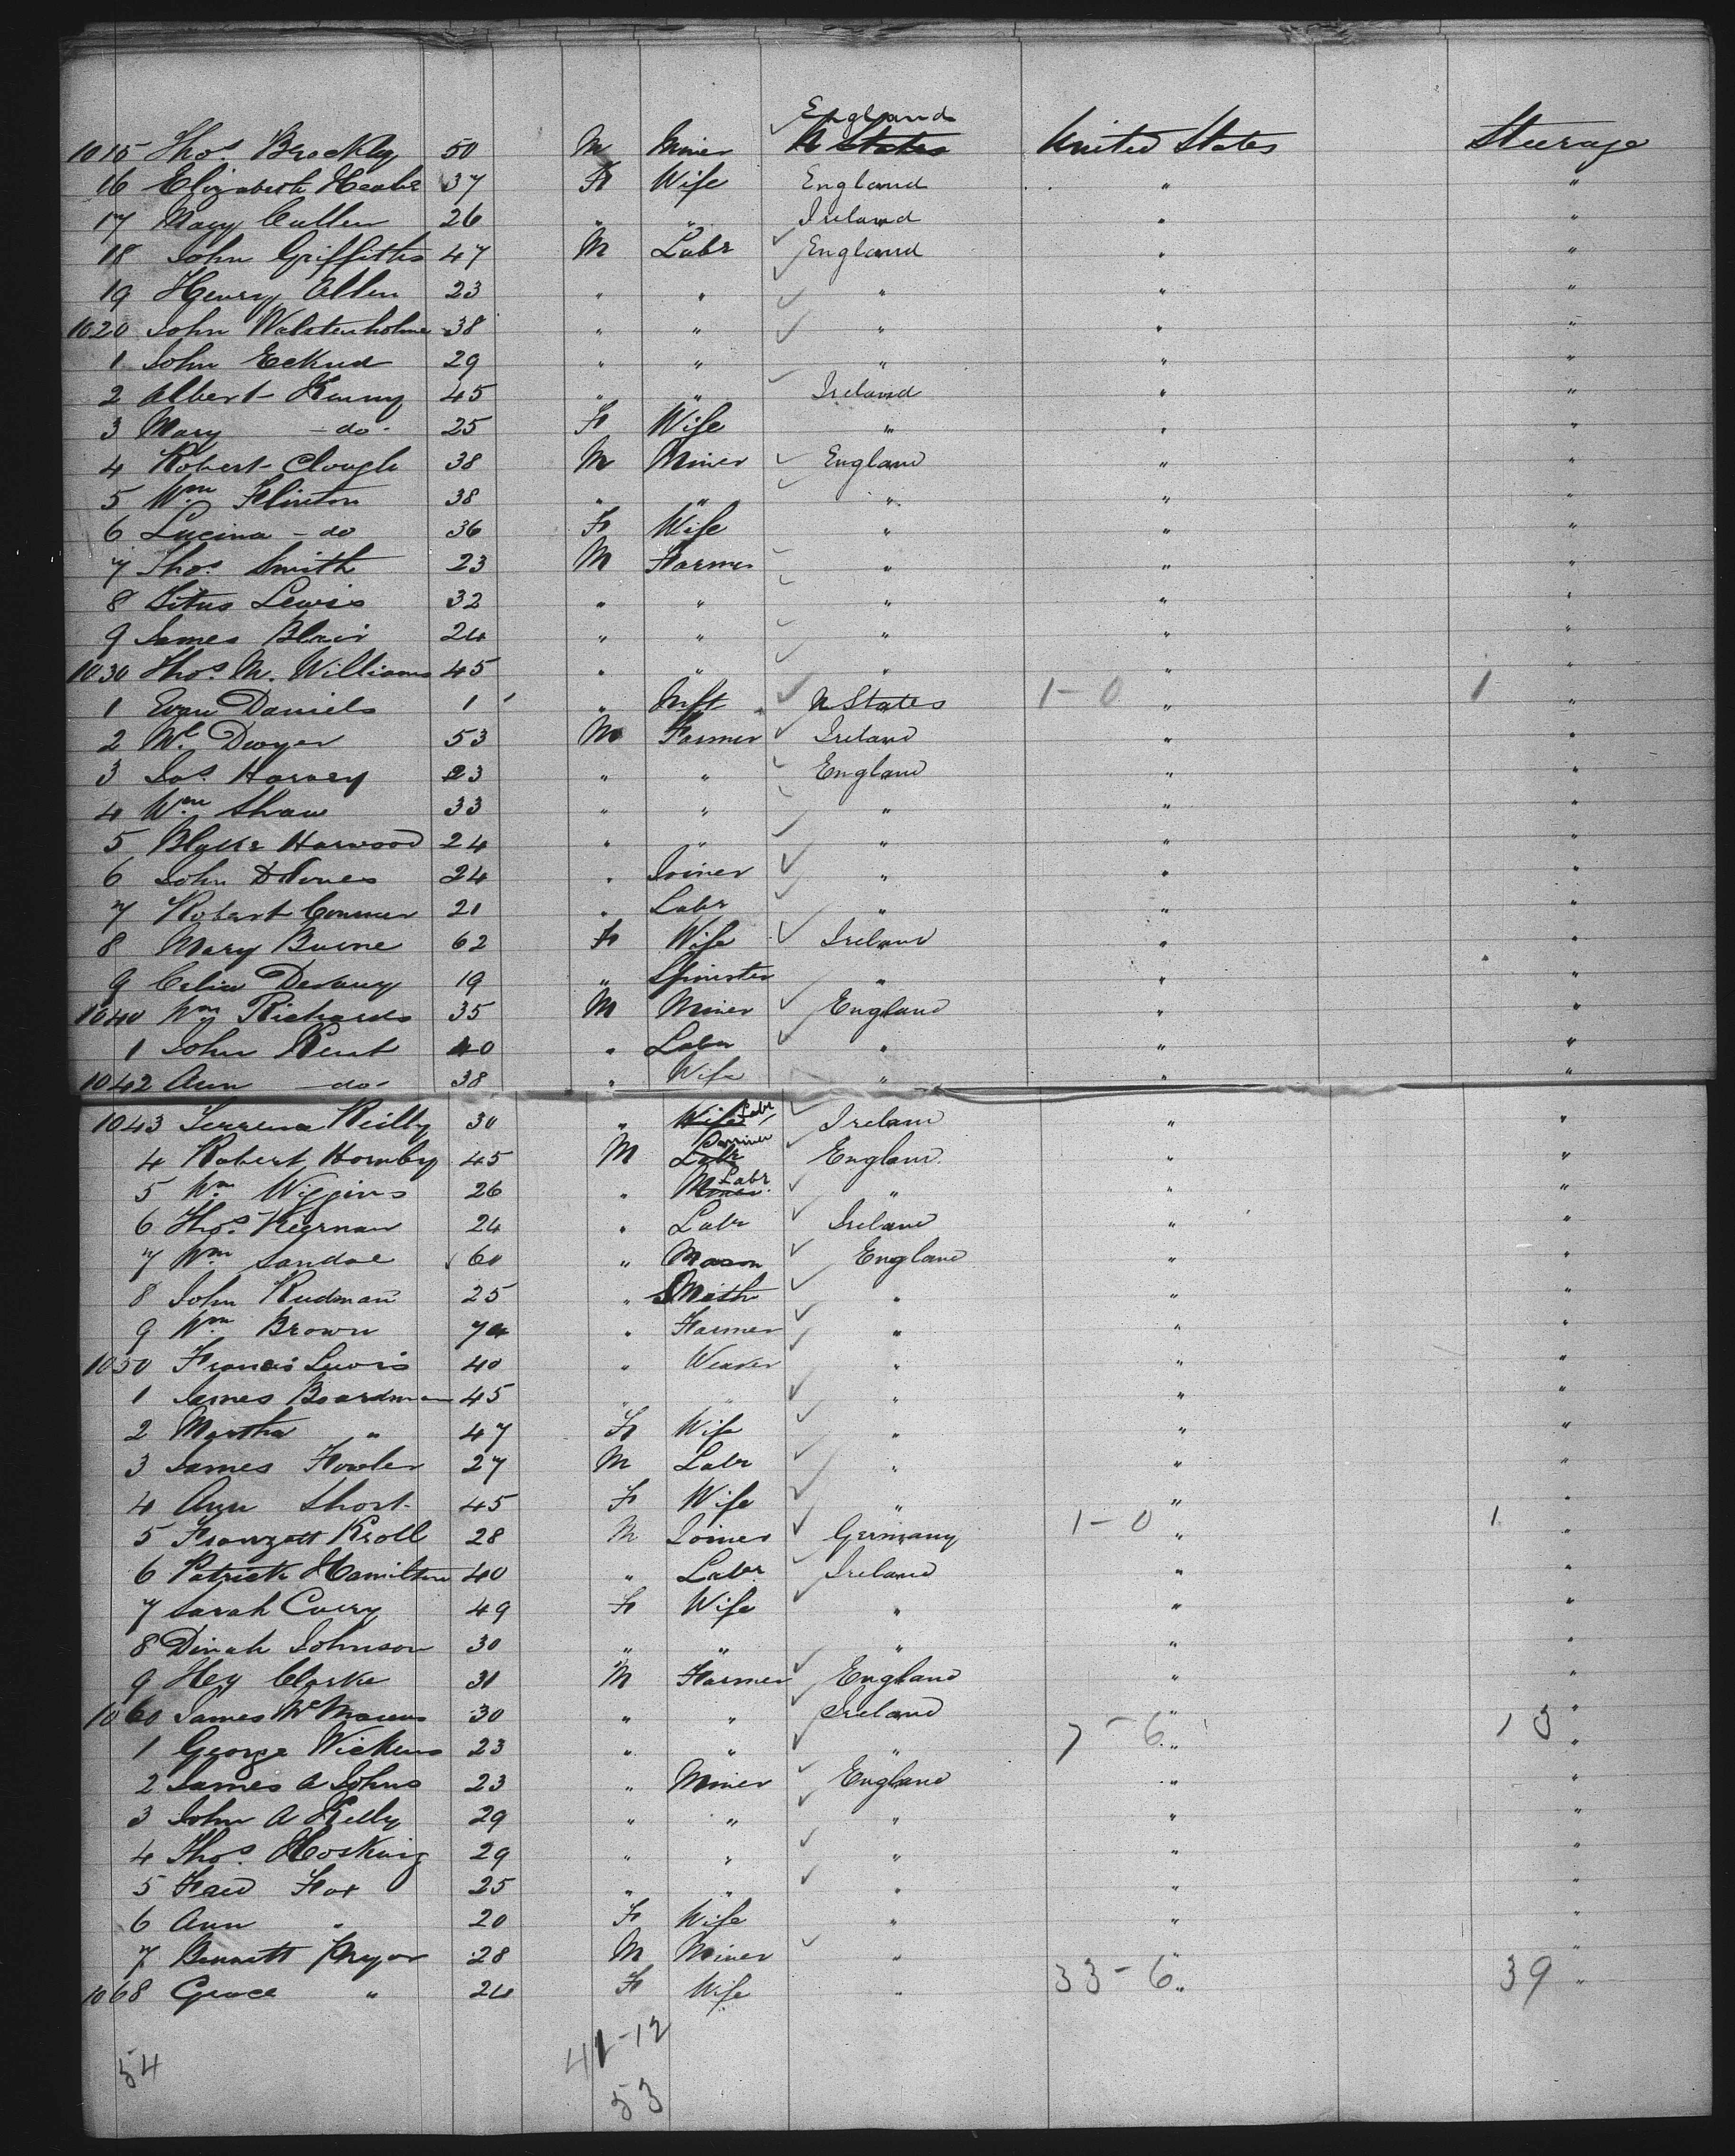 England
1015 Thos. Brockley 50 M Miner U States United States Steerage
16 Elizabeth 37 F Wife England " "
17 Mary Cullen 26 " " Ireland " "
18 John Griffiths 47 M Labr England " "
19 Henry Allen 23 " " " " "
1020 John Walstenholme 38 " " " " "
1 John 29 " " " " "
2 Albert Kenny 45 " " Ireland " "
3 Mary - do - 25 F Wife " " "
4 Robert Clough 38 M Miner England " "
5 Wm Flinton 38 " " " " "
6 Lucina - do 36 F Wife " " "
7 Thos. Smith 23 M Farmer " " "
8 Titus Lewis 32 " " " " "
9 James Blair 24 " " " " "
1030 Thos. M. Williams 45 " " " " "
1 Evan Daniels 1 " Inft U States 1-0 " 1 "
2 Mc Dwyer 53 M Farmer Ireland " "
3 Jas. Harvey 23 " " England " "
4 Wm Shaw 33 " " " " "
5 Harwood 24 " " " " "
6 John D Jones 24 " Joiner " " "
7 Robert 21 " Labr " " "
8 Mary Burne 62 F Wife Ireland " "
9 Celia Devany 19 " Spinster " " "
1040 Wm Richards 35 M Miner England " "
1 John Kent 40 " Labr " " "
1042 Ann - do - 38 " Wife " " "
1043 Reilly 30 " Wife Labr Ireland " "
4 Robert Hornby 45 M Labr England " "
5 Wm Wiggins 26 " Miner Labr " " "
6 Thos. Kiernan 24 " Labr Ireland " "
7 Wm Sandoe 60 " Mason England " "
8 John Rudman 25 " Smith " " "
9 Wm Brown " Farmer " " "
1050 Francis Lewis 40 " Weaver " " "
1 James Boardman 45 " " " " "
2 Martha " 47 F Wife " " "
3 James Fowler 27 M Labr " " "
4 Ann Short 45 F Wife " " "
5 Kroll 28 M Joiner Germany 1-0 " 1 "
6 Patrick Hamilton 40 " Labr Ireland " "
7 Sarah 49 F Wife " " "
8 Dinah Johnson 30 " " " " "
9 Hey Clarke 31 M Farmer England " "
1060 James 30 " " Ireland " "
1 George Wickens 23 " " " 7-6 " 13 "
2 James A Johns 23 " Miner England " "
3 John A Kelly 29 " " " " "
4 Thos. Hosking 29 " " " " "
5 Fox 25 " " " " "
6 Ann " 20 F Wife " " "
7 Bennett Pryor 28 M Miner " " "
1068 Grace " 24 F Wife " 33-6 " 39 "
41-12
54
53